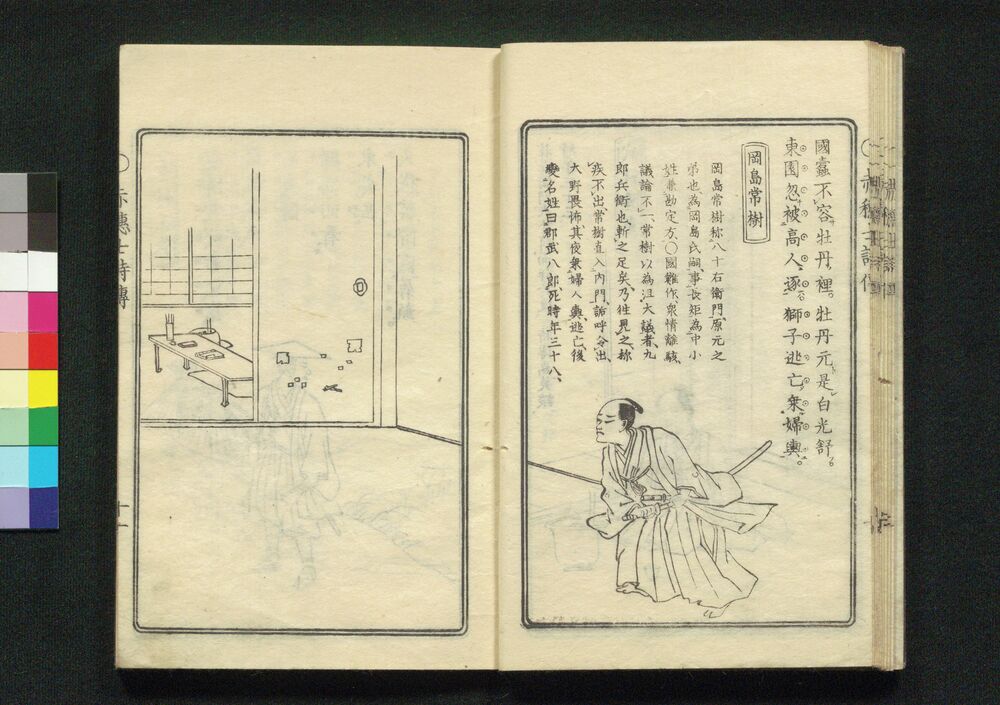 國蠧不容牡丹裡。牡丹元是白光舒。
東園忽被高人逐。獅子逃亡乗婦輿。
岡島常樹
岡島常樹称八十右衛門原元之
弟也為岡島氏嗣事長矩為中小
姓兼勘定方〇國難作衆情離駭
議論不一常樹以為沮大議者九
郎兵衛也斬之足矣乃徃見之称
疾不出常樹直入内門詬呼分出
大野畏怖其夜乗婦人輿逃亡後
變名姓曰郡武八郎死時年三十八
〇赤穗士詩傳
十一